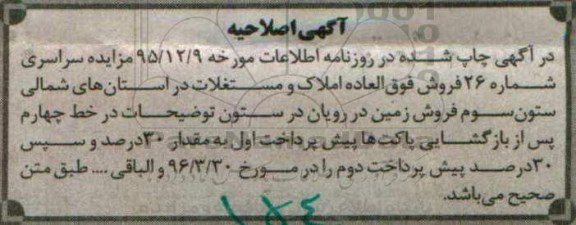 آگهی اصلاحیه
در آگهی چاپ شده در روزنامه اطلاعات مورخه ۹۵/۱۲/۹ مزایده سراسری
شماره ۲۶ فروش فوق العاده املاک و مستغلات در استان‌های شمالی
ستون سوم فروش زمین در رویان در ستون توضیحات در خط چهارم
پس از بازگشایی پاکت‌ها پیش پرداخت اول به مقدار ۳۰درصد و سپس
۳۰درصد پیش پرداخت دوم را در مورخ ۹۶/۳/۳۰ و الباقی .... طبق متن
صحیح می‌باشد.